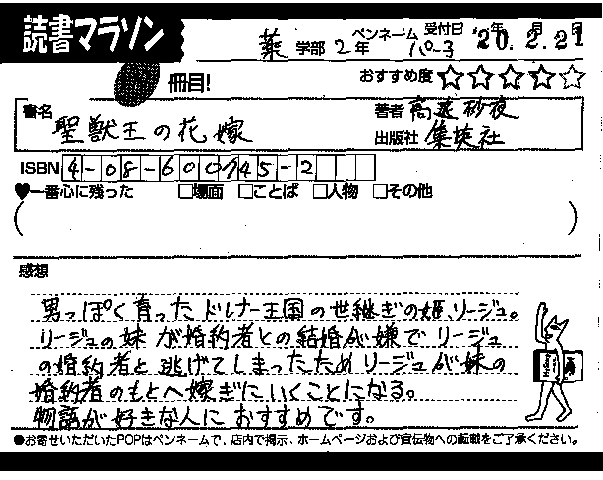 読書マラソン
薬 学部 2 年 ペンネーム パーヨ 受付日 '20年.2月.21日
冊目! おすすめ度 ☆☆☆☆☆
書名 聖獣王の花嫁 著者 高遠砂夜
出版社 集英社
ISBN 4-08-600745-2
♥一番心に残った □場面 □ことば □人物 □その他
( )
感想
男っぽく育ったドルナー王国の世継ぎの姫、リージュ。
リージュの妹が婚約者との結婚が嫌でリージュ
の婚約者と逃げてしまったためリージュが妹の
婚約者のもとへ嫁ぎにいくことになる。
物語が好きな人におすすめです。
●お寄せいただいたPOPはペンネームで、店内で掲示、ホームページおよび宣伝物への転載をご了承ください。